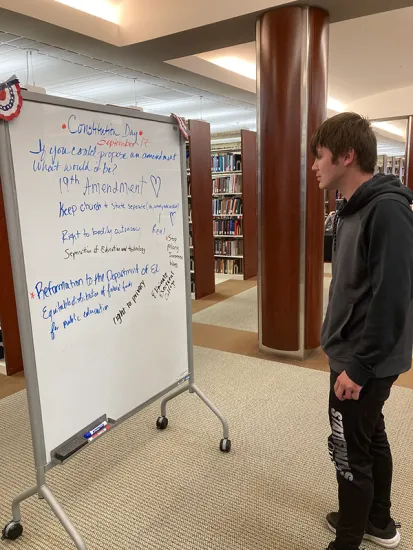 Constitution Day
September 17
If you could propose an amendment
What would it be?
19th Amendment ♡
Keep church & state separate
Right to bodily autonomy
Real!
Separation of Education and technology
Stop
Making
Wars
* Reformation to the Department of Ed
Equitable distribution of federal funds
for public education
right to privacy
Eliminate